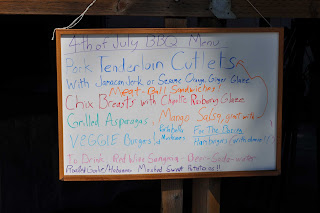 4th of July BBQ Menu
Pork Tenderloin Cutlets
With Jamaican Jerk or Sesame Orange Ginger Glaze
Meat-Ball Sandwiches
Chix Breasts with Chipotle Glaze
Grilled Asparagus, Mango Salsa,
VEGGIE Burgers w/ Portobello Mushrooms For The Dorita
Hamburgers
To Drink: Red Wine Sangria - Beer - Soda - water
Roasted Garlic/Habanero Mashed Sweet Potatoes!!